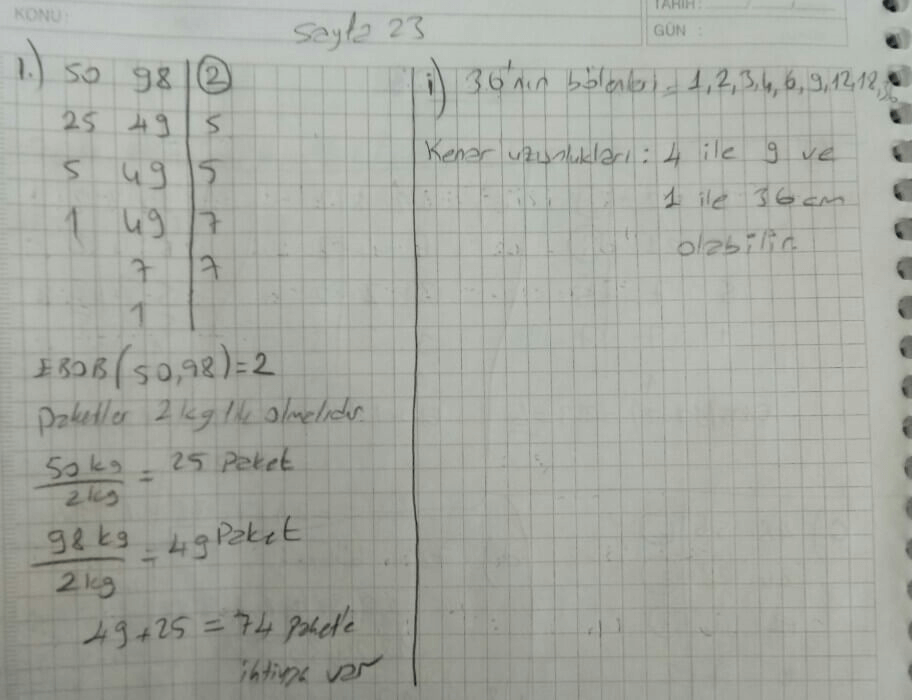 KONU:
TARİH:
GÜN :
Sayfa 23
1.) 50 98 | 2
25 49 | 5
5 49 | 5
1 49 | 7
7 | 7
1
EBOB(50,98)=2
Paketler 2 kg lık olmalıdır.
50 kg / 2 kg = 25 Paket
98 kg / 2 kg = 49 Paket
49+25 = 74 pakete
ihtiyaç var
i) 36'nın bölenleri = 1,2,3,4,6,9,12,18,36
Kenar uzunlukları: 4 ile 9 ve
1 ile 36 cm
olabilir.